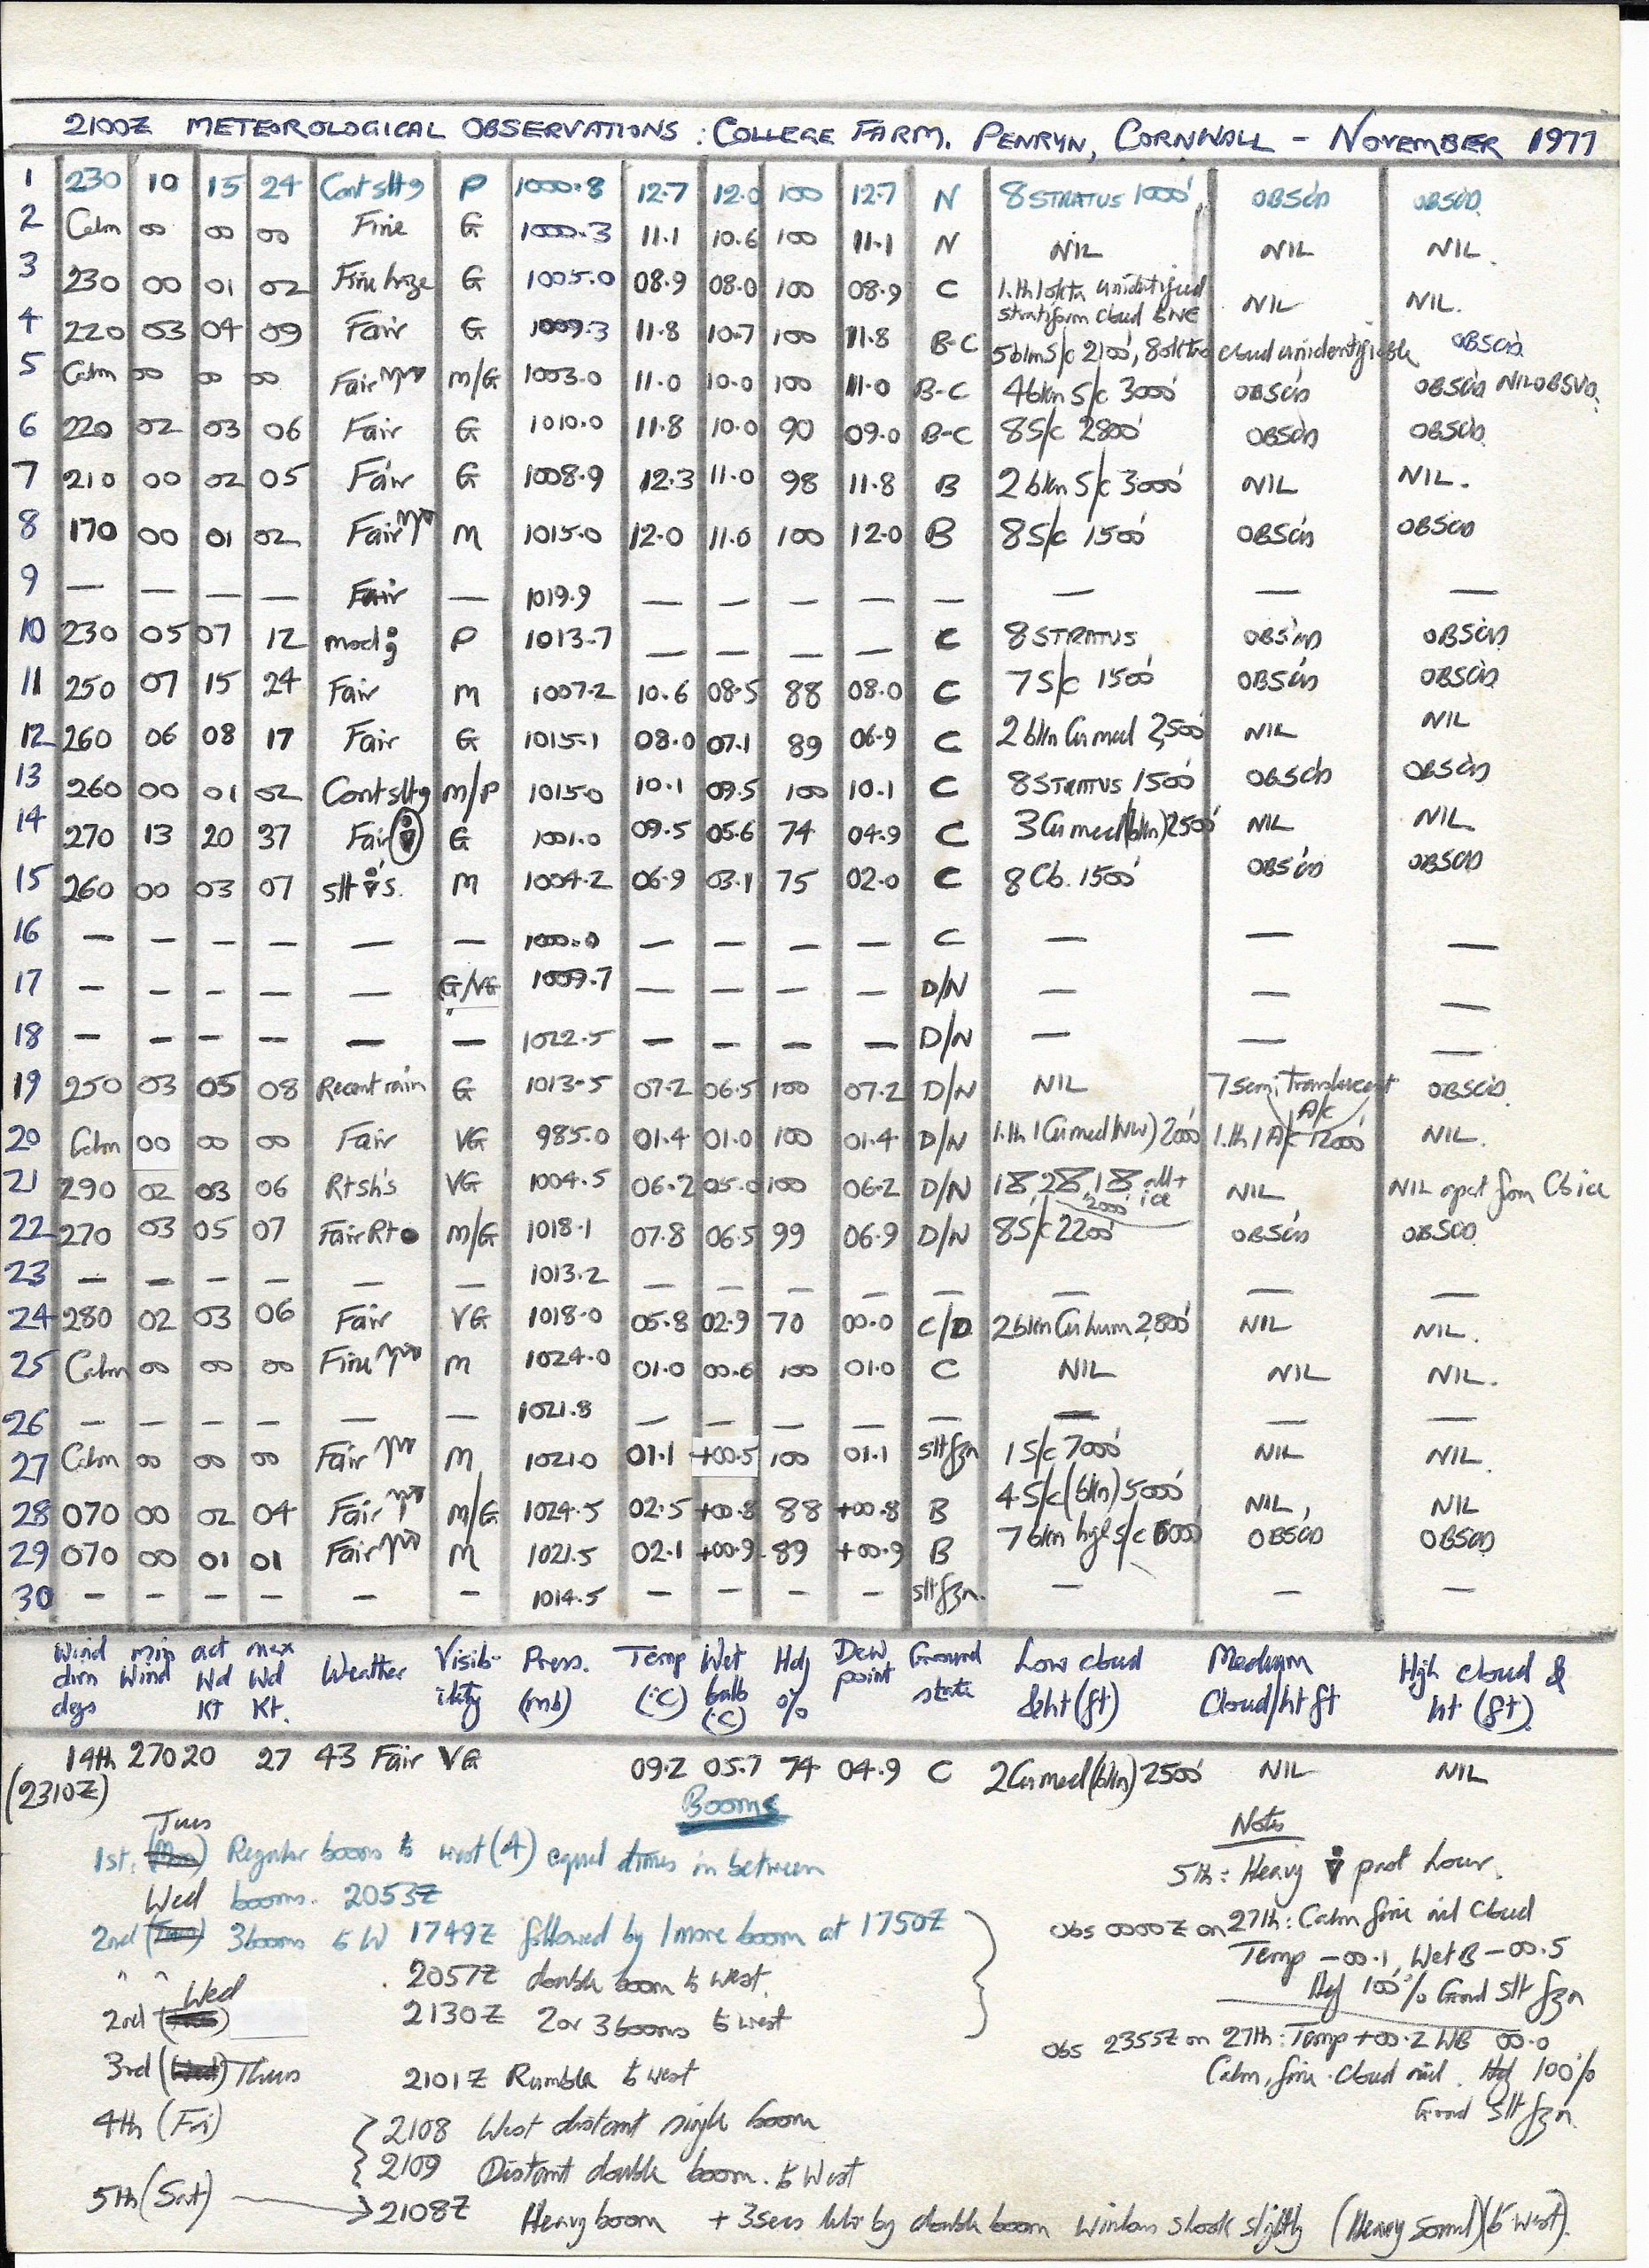 2100Z METEOROLOGICAL OBSERVATIONS : COLLEGE FARM, PENRYN, CORNWALL - NOVEMBER 1977
1 230 10 15 24 Cont slt P 1000.8 12.7 12.0 100 12.7 N 8 STRATUS 1000' OBSCD OBSCD
2 Calm 00 00 00 Fine G 1000.3 11.1 10.6 100 11.1 N NIL NIL NIL.
3 230 00 01 02 Fine haze G 1005.0 08.9 08.0 100 08.9 C 1.th 1 okta unidentified stratiform cloud ENE NIL NIL.
4 220 03 04 09 Fair G 1009.3 11.8 10.7 100 11.8 B-C 5 bkn S/c 2100', 8 oktas cloud unidentifiable OBSCD
5 Calm 00 00 00 Fair M/G 1003.0 11.0 10.0 100 11.0 B-C 4 bkn S/c 3000' OBSCD OBSCD NIL OBSVD.
6 220 02 03 06 Fair G 1010.0 11.8 10.0 90 09.0 B-C 8 S/c 2800' OBSCD OBSCD
7 210 00 02 05 Fair G 1008.9 12.3 11.0 98 11.8 B 2 bkn S/c 3000' NIL NIL.
8 170 00 01 02 Fair M 1015.0 12.0 11.0 100 12.0 B 8 S/c 1500' OBSCD OBSCD
9 — — — — Fair — 1019.9 — — — — — — — —
10 230 05 07 12 mod P 1013.7 — — — — C 8 STRATUS OBSCD OBSCD
11 250 07 15 24 Fair M 1007.2 10.6 08.5 88 08.0 C 7 S/c 1500' OBSCD OBSCD
12 260 06 08 17 Fair G 1015.1 08.0 07.1 89 06.9 C 2 bkn Cu med 2,500' NIL NIL
13 260 00 01 02 Cont slt M/P 1015.0 10.1 09.5 100 10.1 C 8 STRATUS 1500' OBSCD OBSCD
14 270 13 20 37 Fair G 1001.0 09.5 05.6 74 04.9 C 3 Cu med (bkn) 2500' NIL NIL.
15 260 00 03 07 slt s. M 1004.2 06.9 03.1 75 02.0 C 8 Cb. 1500' OBSCD OBSCD
16 — — — — — — 1000.0 — — — — C — — —
17 — — — — — G/VG 1009.7 — — — — D/N — — —
18 — — — — — — 1022.5 — — — — D/N — — —
19 250 03 05 08 Recent rain G 1013.5 07.2 06.5 100 07.2 D/N NIL 7 semi Translucent A/c OBSCD.
20 Calm 00 00 00 Fair VG 985.0 01.4 01.0 100 01.4 D/N 1.th 1 Cu med (NW) 2000' 1.th 1 A/c 12000' NIL.
21 290 02 03 06 Rt sh's VG 1004.5 06.2 05.0 100 06.2 D/N 2000' NIL NIL apart from Cb ice
22 270 03 05 07 Fair Rt M/G 1018.1 07.8 06.5 99 06.9 D/N 8 S/c 2200' OBSCD OBSCD
23 — — — — — — 1013.2 — — — — — — — —
24 280 02 03 06 Fair VG 1018.0 05.8 02.9 70 00.0 C/D 2 bkn Cu hum 2,800' NIL NIL.
25 Calm 00 00 00 Fine M 1024.0 01.0 00.6 100 01.0 C NIL NIL NIL.
26 — — — — — — 1021.8 — — — — — — — —
27 Calm 00 00 00 Fair M 1021.0 01.1 +00.5 100 01.1 slt fzn 1 S/c 7000' NIL NIL.
28 070 00 02 04 Fair M/G 1024.5 02.5 +00.8 88 +00.8 B 4 S/c (bkn) 5000' NIL, NIL
29 070 00 01 01 Fair M 1021.5 02.1 +00.9 89 +00.9 B 7 bkn S/c 6000' OBSCD OBSCD
30 — — — — — — 1014.5 — — — — slt fzn. — — —
Wind dirn degs min Wind act Wd Kt max Wd Kt. Weather Visibility Press. (mb) Temp (°C) Wet bulb (°C) Hdy % Dew point Ground state Low cloud & ht (ft) Medium Cloud/ht ft High cloud & ht (ft)
14th 270 20 27 43 Fair VG 09.2 05.7 74 04.9 C 2 Cu med (bkn) 2500' NIL NIL
(2310Z)
Booms
Tues
1st: (Mon) Regular booms to west (4) equal times in between
booms. 2053Z
Wed
2nd (Tues) 3 booms to W 1749Z followed by 1 more boom at 1750Z
" " 2057Z double boom to West.
Wed
2nd 2130Z 2 or 3 booms to west
3rd (Wed) Thurs 2101Z Rumble to west
4th (Fri) 2108 West distant single boom
2109 Distant double boom. to West
5th (Sat) 2108Z Heavy boom + 3secs later by double boom Windows shook slightly (Heavy sound) (to West).
Notes
5th: Heavy past hour.
Obs 0000Z on 27th: Calm fine nil cloud
Temp -00.1, Wet B -00.5
Hdy 100% Grnd slt fzn
Obs 2355Z on 27th: Temp +00.2 WB 00.0
Calm, fine. cloud nil. Hdy 100%
Grnd slt fzn